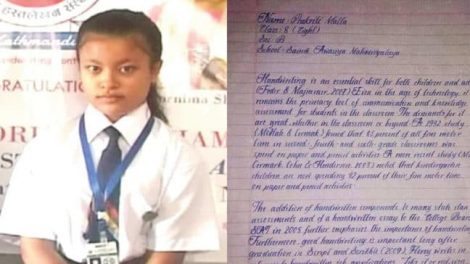 Kathmandu
GRATULATI
ORL
AM
ST
Name: Prakriti Malla
Class: 8 (Eight)
Sec: B
School: Sainik Awasiya Mahavidyalaya
Handwriting is an essential skill for both children and adu
(Feder & Majnemer, 2007) Even in the age of technology, it
remains the primary tool of communication and knowledge
assessment for students in the classroom. The demands for it
are great, whether in the classroom or beyond. A 1992 study
(McHale & Cermak) found that 85 percent of all fine motor
time in second-, fourth- and sixth-grade classrooms was
spent on paper and pencil activities. A more recent study
Cermak, Cohn & Henderson, 2003) noted that kindergarten
children are now spending 42 percent of their fine motor time
on paper and pencil activities.
The addition of handwritten components to many state stan
assessments and of a handwritten essay to the College Board
SAT in 2005 further emphasize the importance of handwriting
Furthermore, good handwriting is important long after
graduation. In Script and Scribble (2009), Florey writes in
handwritten job applications. "Like it or not, we